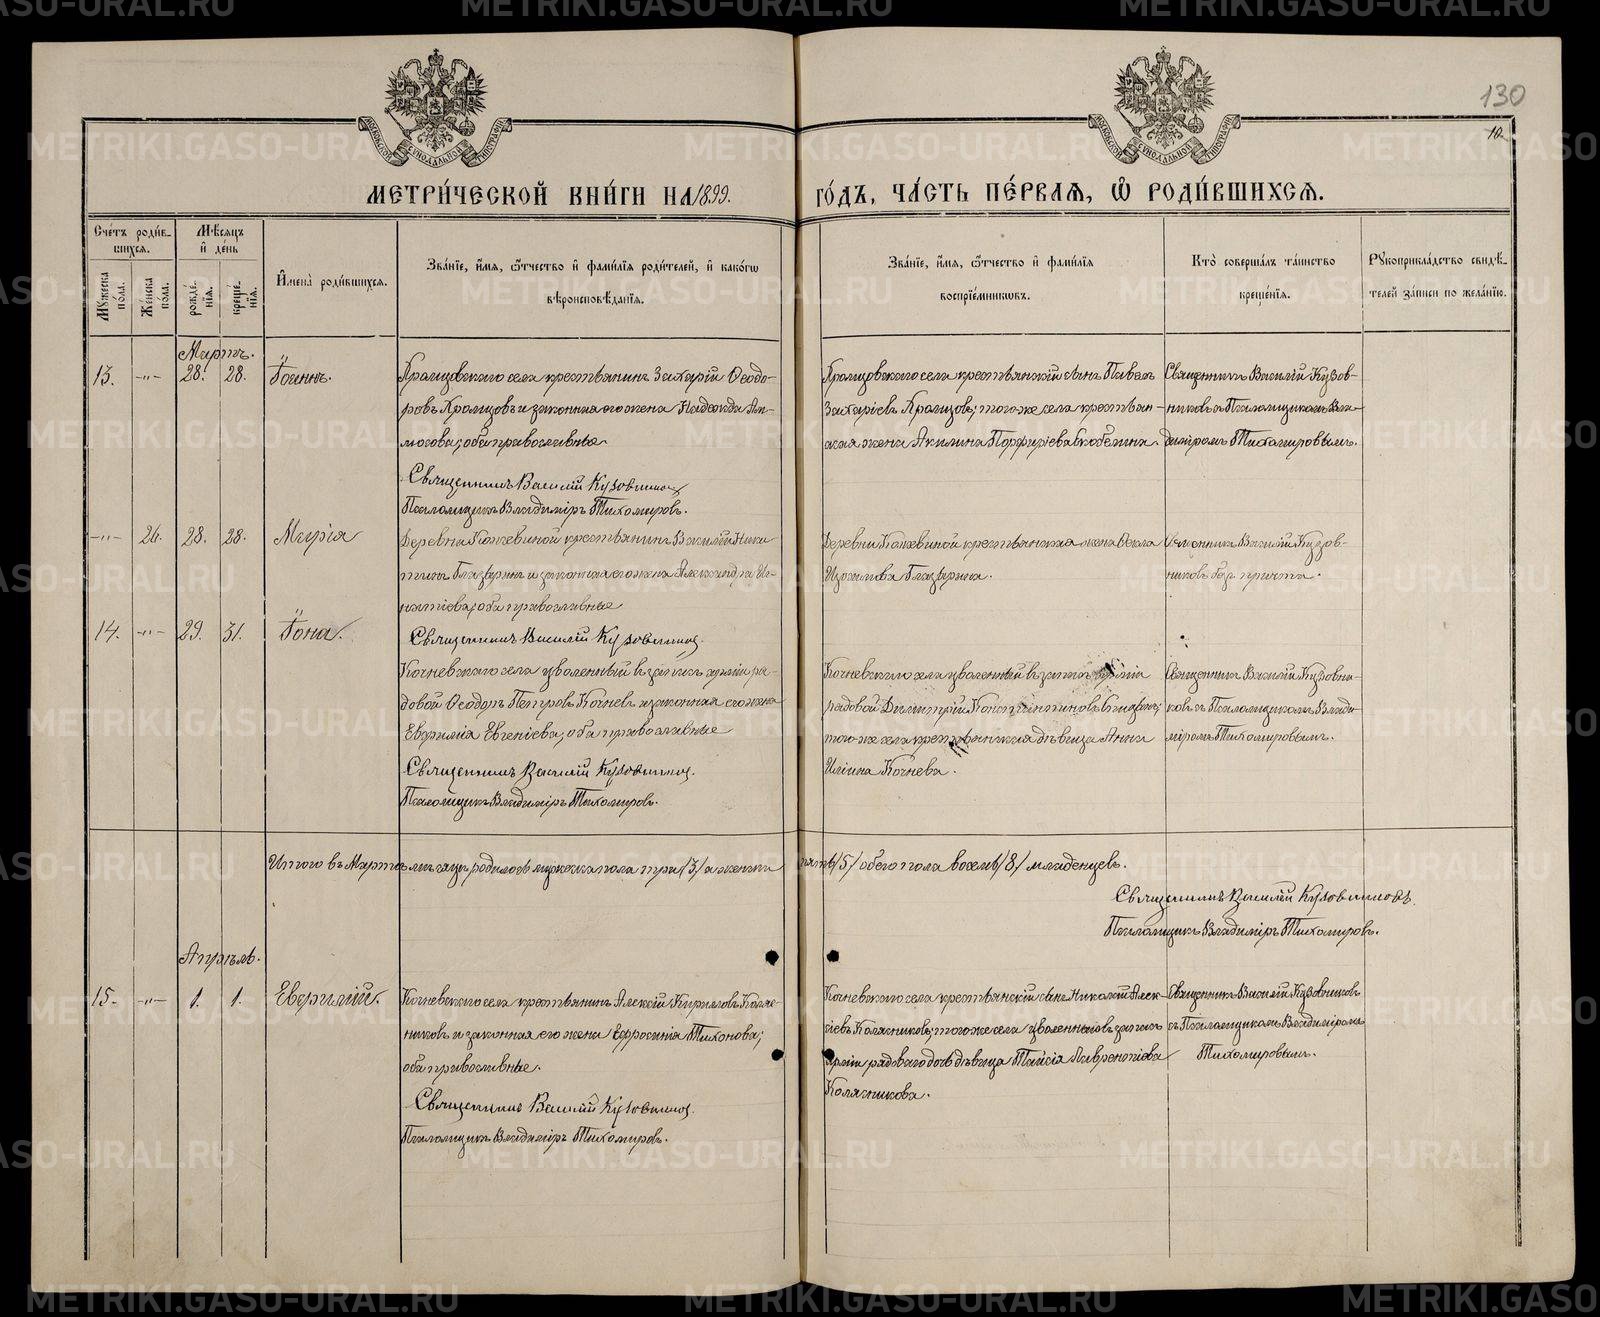 130
10.
МОСКОВСКОЙ СѴНОДАЛЬНОЙ ТИПОГРАФІИ
МОСКОВСКОЙ СѴНОДАЛЬНОЙ ТИПОГРАФІИ
МЕТРИ́ЧЕСКОЙ КНИ́ГИ НА 1899. ГО́ДЪ, ЧА́СТЬ ПЕ́РВАѦ, Ѽ РОДИ́ВШИХСѦ.
Сче́тъ роди́в-
шихсѧ.
Мѣ́сѧцъ
и҆ де́нь
Мꙋ́жеска
по́ла.
Же́нска
по́ла.
рожде́-
нїѧ.
креще́-
нїѧ.
И҆мена̀ роди́вшихсѧ.
Зва́нїе, и҆́мѧ, ѻ҆́тчество и҆ фами́лїѧ роди́телей, и҆ како́гѡ
вѣроисповѣ́данїѧ.
Зва́нїе, и҆́мѧ, ѻ҆́тчество и҆ фами́лїѧ
воспрїе́мникѡвъ.
Кто̀ соверша́лъ та́инство
креще́нїѧ.
Рꙋкоприкла́дство свидѣ́-
телей за́писи по жела́нїю.
Мартъ.
13. -"- 28. 28. Іоаннъ.
Храмцовскаго села крестьянинъ Захарій Ѳеодо-
ровъ Храмцовъ и законная его жена Надежда Ам-
мосова; оба православные.
Священникъ Василій Кузовниковъ
Псаломщикъ Владиміръ Тихомировъ.
Храмцовскаго села крестьянскій сынъ Павелъ
Захаріевъ Храмцовъ; того же села крестьян-
ская жена Акилина Порфиріева
Священникъ Василій Кузов-
никовъ съ Псаломщикомъ Вла-
диміромъ Тихомировымъ.
-"- 26. 28. 28. Марія
Деревни крестьянинъ Василій Ники-
тинъ Глазыринъ и законная его жена Александра Иг-
натіева; оба православные
Священникъ Василій Кузовниковъ.
Деревни крестьянская жена Ѳекла
Глазырина.
Священникъ Василій Кузов-
никовъ безъ причта.
14. -"- 29. 31. Іона.
Кочневскаго села уволенный въ запасъ арміи ря-
довой Ѳеодоръ Петровъ Кочневъ и законная его жена
Евфимія Евгеніева; оба православные
Священникъ Василій Кузовниковъ.
Псаломщикъ Владиміръ Тихомировъ.
Кочневскаго села уволенный въ запасъ арміи
рядовой Димитрій Константиновъ
того же села крестьянская дѣвица Анна
Иліина Кочнева.
Священникъ Василій Кузовни-
ковъ съ Псаломщикомъ Влади-
міромъ Тихомировымъ.
Итого въ Мартѣ мѣсяцѣ родилось мужеска пола три /3/ а женска пять /5/ обего пола восемь /8/ младенцевъ.
Священникъ Василій Кузовниковъ.
Псаломщикъ Владиміръ Тихомировъ.
Апрѣль.
15. -"- 1. 1. Евфимій.
Кочневскаго села крестьянинъ Алексій Кириловъ Коляс-
никовъ и законная его жена Ефросинія Тихонова;
оба православные.
Священникъ Василій Кузовниковъ.
Псаломщикъ Владиміръ Тихомировъ.
Кочневскаго села крестьянскій сынъ Николай Алек-
сіевъ Колясниковъ; того же села уволеннаго въ запасъ
арміи рядоваго дочь дѣвица Таисія Лаврентіева
Колясникова.
Священникъ Василій Кузовниковъ
съ Псаломщикомъ Владиміромъ
Тихомировымъ.
METRIKI.GASO-URAL.RU